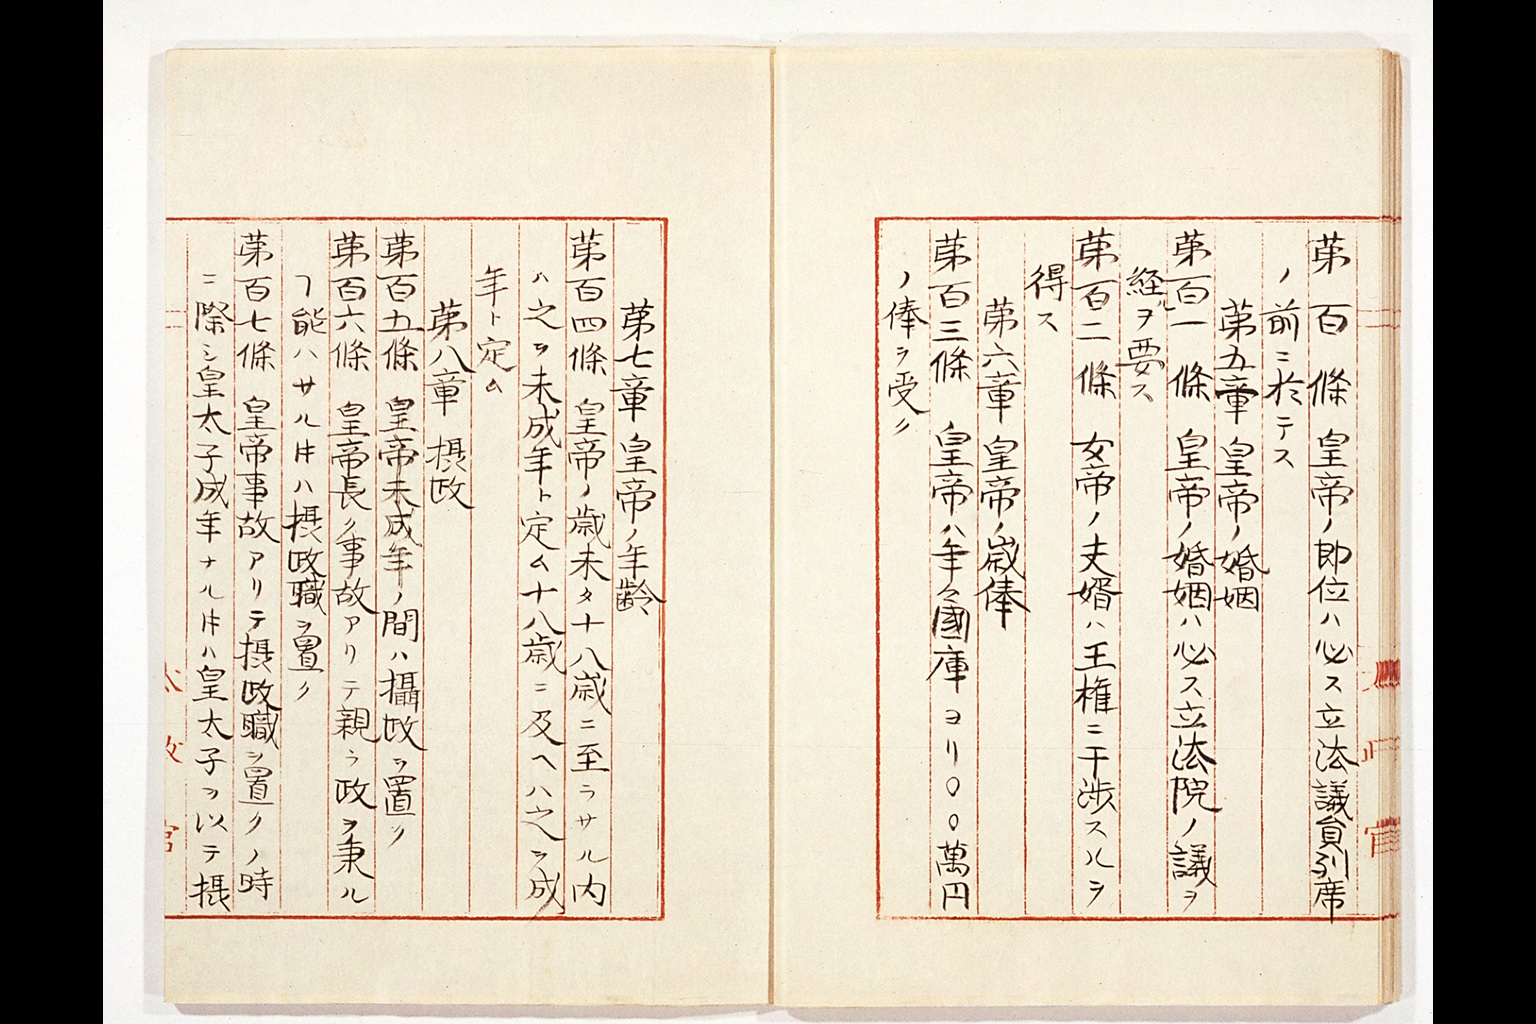 第百條 皇帝ノ即位ハ必ス立法議員列席
ノ前ニ於テス
第五章 皇帝ノ婚姻
第百一條 皇帝ノ婚姻ハ必ス立法院ノ議ヲ
経ルヲ要ス
第百二條 女帝ノ夫婿ハ王権ニ干渉スルヲ
得ス
第六章 皇帝ノ歳俸
第百三條 皇帝ハ年々國庫ヨリ〇〇〇萬円
ノ俸ヲ受ク
第七章 皇帝ノ年齢
第百四條 皇帝ノ歳未タ十八歳ニ至ラサル内
ハ之ヲ未成年ト定ム十八歳ニ及ヘハ之ヲ成
年ト定ム
第八章 摂政
第百五條 皇帝未成年ノ間ハ攝政ヲ置ク
第百六條 皇帝長ク事故アリテ親ラ政ヲ秉ル
ヿ能ハサル𪜈ハ摂政職ヲ置ク
第百七條 皇帝事故アリテ摂政職ヲ置クノ時
ニ際シ皇太子成年ナル𪜈ハ皇太子ヲ以テ摂
太政官